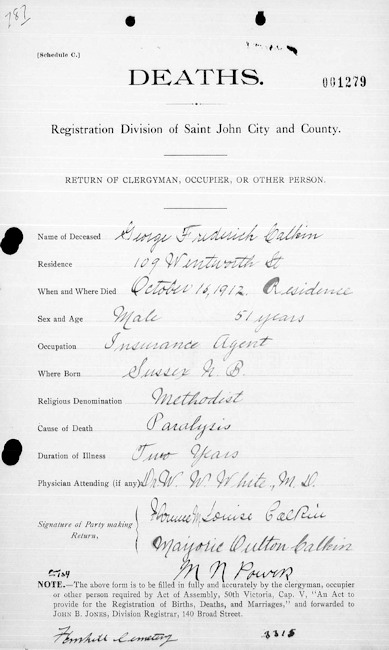 787
[Schedule C.]
DEATHS.
001279
Registration Division of Saint John City and County.
RETURN OF CLERGYMAN, OCCUPIER, OR OTHER PERSON.
Name of Deceased George Frederick Calkin
Residence 109 Wentworth St
When and Where Died October 16, 1912. Residence
Sex and Age Male 51 years
Occupation Insurance Agent
Where Born Sussex N B.
Religious Denomination Methodist
Cause of Death Paralysis
Duration of Illness Two Years
Physician Attending (if any) Dr W. W. White, M.D.
Signature of Party making Return, Louise Calkin
Marjorie Oulton Calkin
M N Power
NOTE.—The above form is to be filled in fully and accurately by the clergyman, occupier
or other person required by Act of Assembly, 50th Victoria, Cap. V, "An Act to
provide for the Registration of Births, Deaths, and Marriages," and forwarded to
JOHN B. JONES, Division Registrar, 140 Broad Street.
Fernhill Cemetery 3315